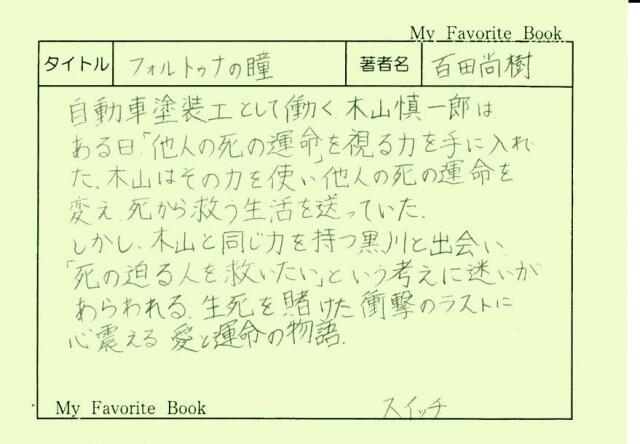 My Favorite Book
タイトル フォルトゥナの瞳 著者名 百田尚樹
自動車塗装工として働く木山慎一郎は
ある日「他人の死の運命」を視る力を手に入れ
た。木山はその力を使い他人の死の運命を
変え、死から救う生活を送っていた。
しかし、木山と同じ力を持つ黒川と出会い
「死の迫る人を救いたい」という考えに迷いが
あらわれる。生死を賭けた衝撃のラストに
心震える愛と運命の物語。
My Favorite Book スイッチ